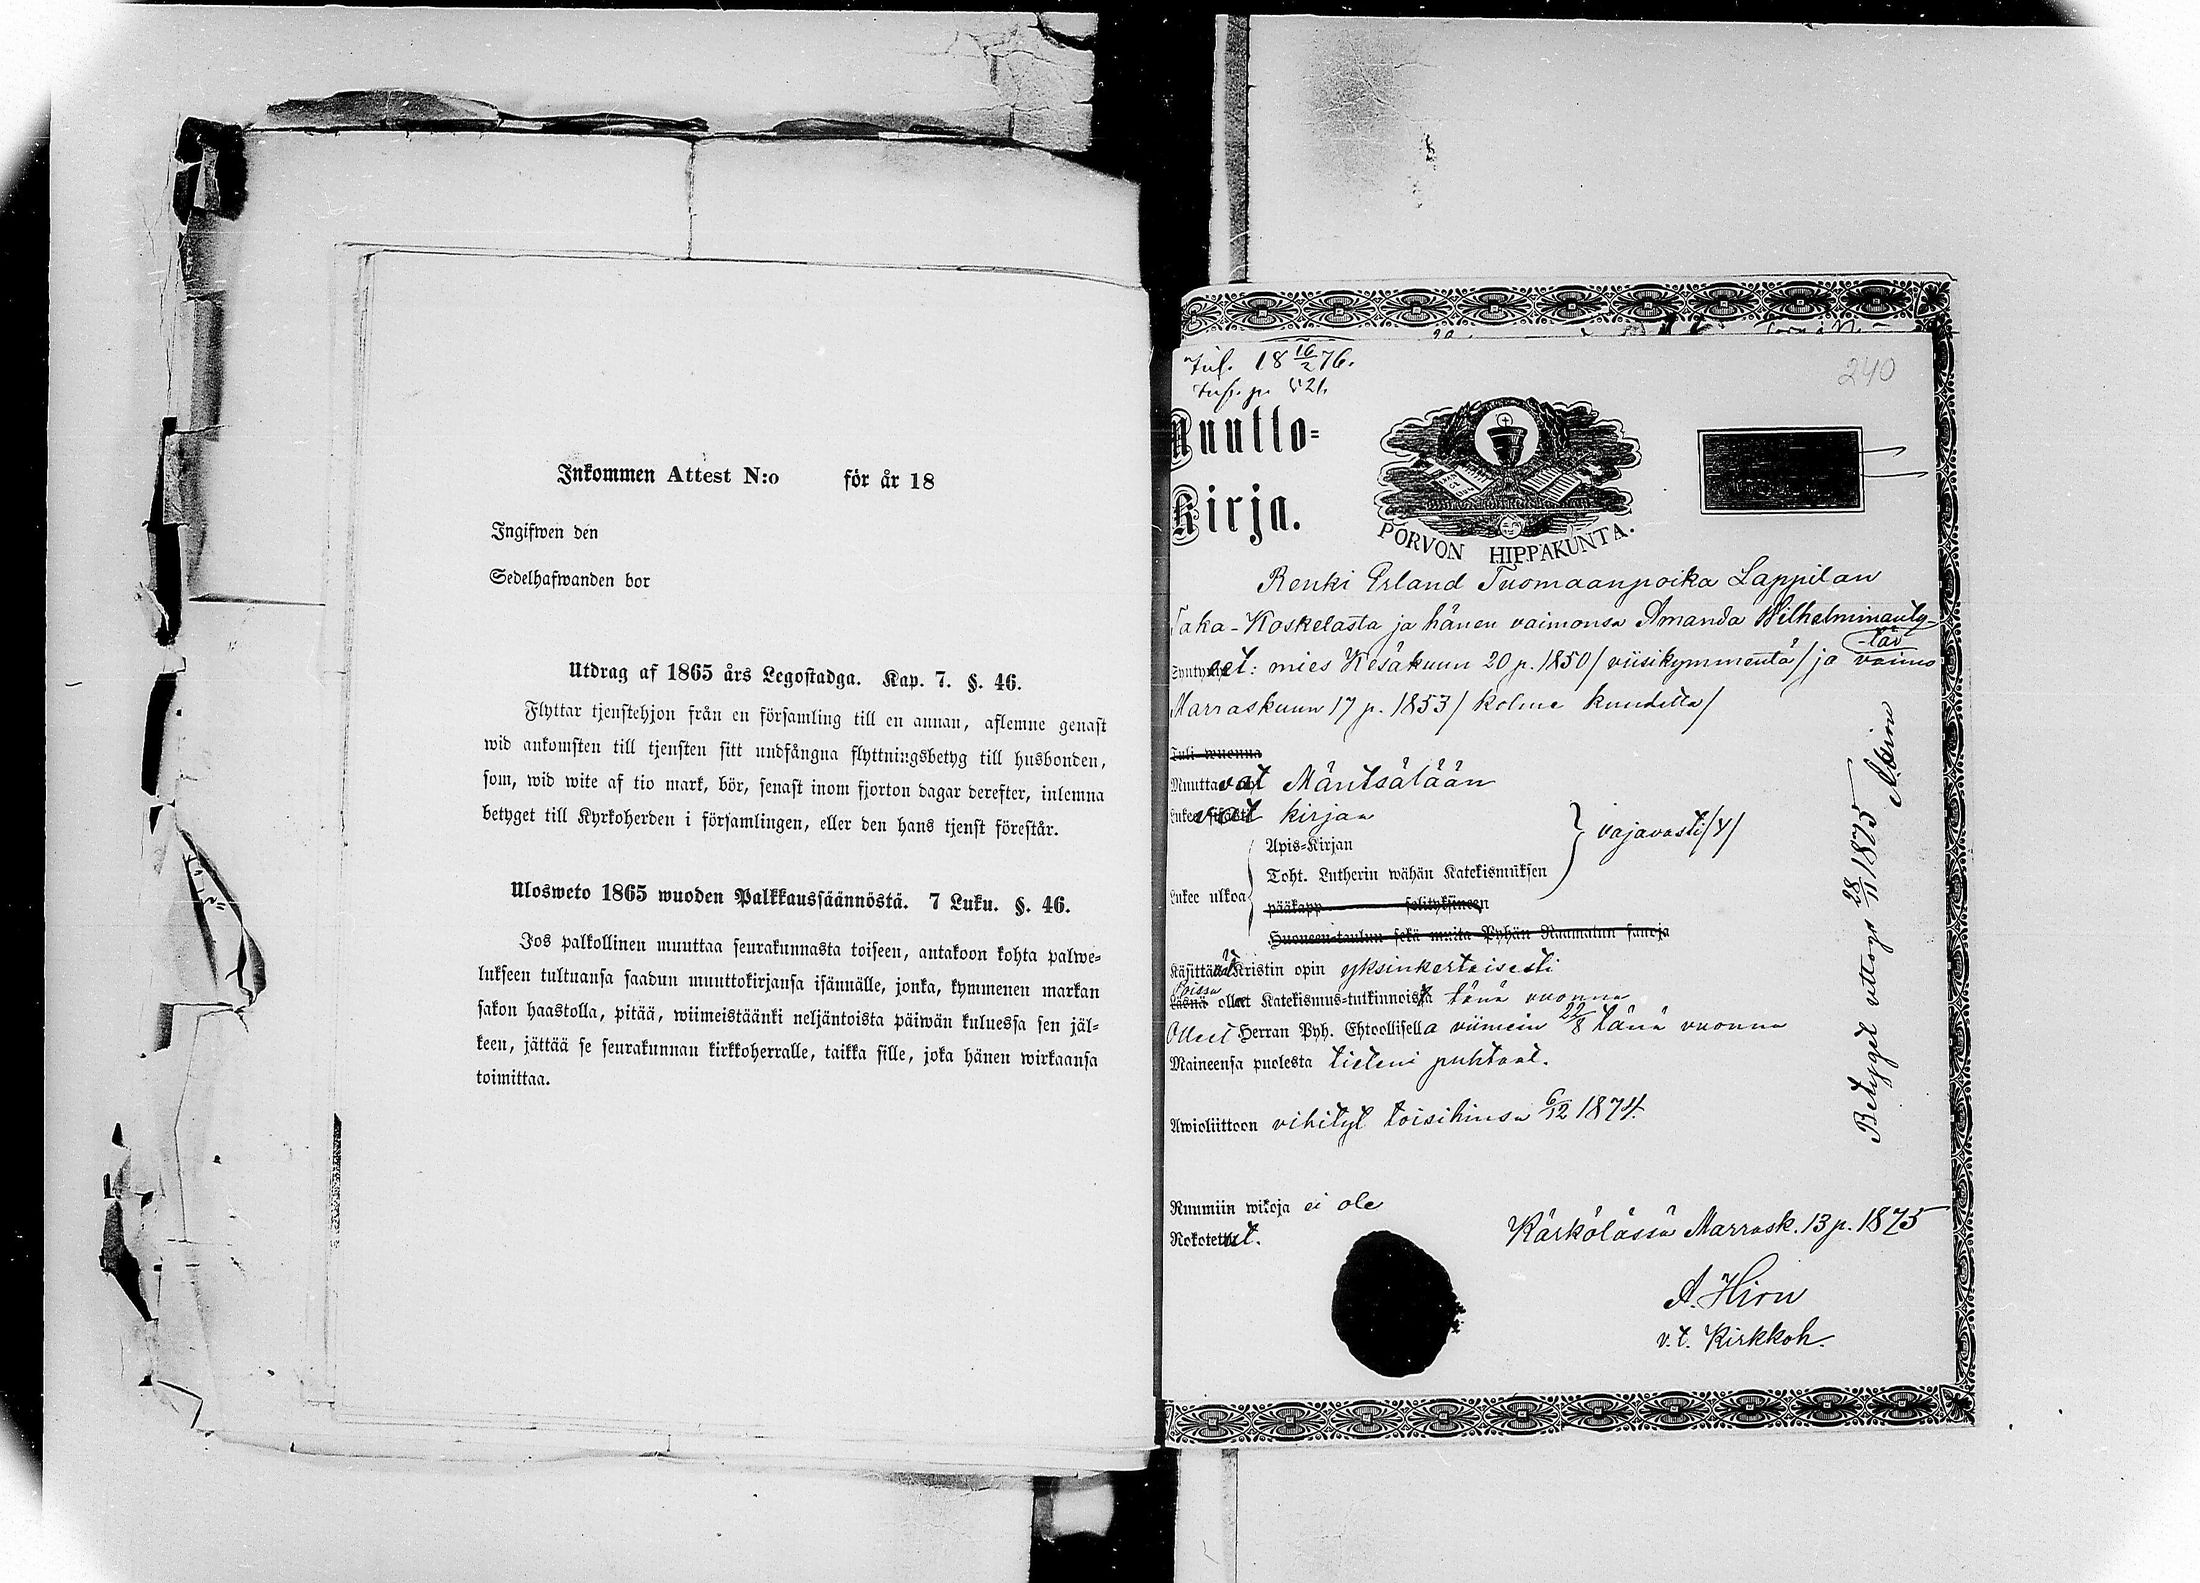 Inkommen Attest N:o för år 18
Ingifwen den
Sedelhafwanden bor
Utdrag af 1865 års Legostadga. Kap. 7. §. 46.
Flyttar tjenstehjon från en församling till en annan, aflemne genast
wid ankomsten till tjensten sitt undfångna flyttningsbetyg till husbonden,
som, wid wite af tio mark, bör, senast inom fjorton dagar derefter, inlemna
betyget till Kyrkoherden i församlingen, eller den hans tjenst förestår.
Ulosweto 1865 wuoden Palkkaussäännöstä. 7 Luku. §. 46.
Jos palkollinen muuttaa seurakunnasta toiseen, antakoon kohta palwe-
lukseen tultuansa saadun muuttokirjansa isännälle, jonka, kymmenen markan
sakon haastolla, pitää, wiimeistäänki neljäntoista päiwän kuluessa sen jäl-
keen, jättää se seurakunnan kirkkoherralle, taikka sille, joka hänen wirkaansa
toimittaa.
18 16/2 76.
p. 521.
240
Muutto-
Kirja.
PORVON HIPPAKUNTA.
Renki Erland Tuomaanpoika Lappilan
Taka-Koskelasta ja hänen vaimonsa Amanda Wilhelminanty-
tär
Syntyneet: mies Kesäkuun 20 p. 1850 / viisikymmentä / ja vaimo
Marraskuun 17 p. 1853 / kolme kuudetta /
Tuli wuonna
Muuttavat Mäntsälään
Lukevat kirjan
Apis-Kirjan
Toht. Lutherin wähän Katekismuksen
vajavasti /y/
Lukee ulkoa
pääkapp selityksineen
Huoneen-taulun sekä muita Pyhän Raamatun sanoja
Käsittävät Kristin opin yksinkertaisesti
Poissa
läsnä olleet Katekismus-tutkinnoista tänä vuonna
Olleet Herran Pyh. Ehtoollisella viimein 22/8 tänä vuonna
Maineensa puolesta tieteni puhtaat.
Awioliittoon vihityt toisihinsa 6/12 1874.
Ruumiin wikoja ei ole
Rokotetut.
Kärkölässä Marrask. 13 p. 1875
A. Hirn
v.t. Kirkkoh.
Betyget uttaget 28/11 1875 A. Hirn